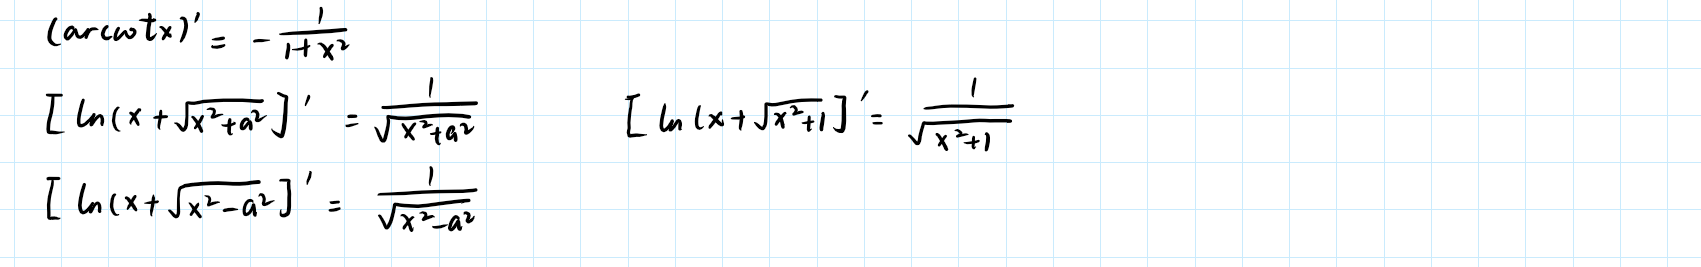 (arccotx)' = - 1/(1+x²)
[ln(x+√(x²+a²)]' = 1/√(x²+a²) [ln(x+√(x²+1)]' = 1/√(x²+1)
[ln(x+√(x²-a²)]' = 1/√(x²-a²)